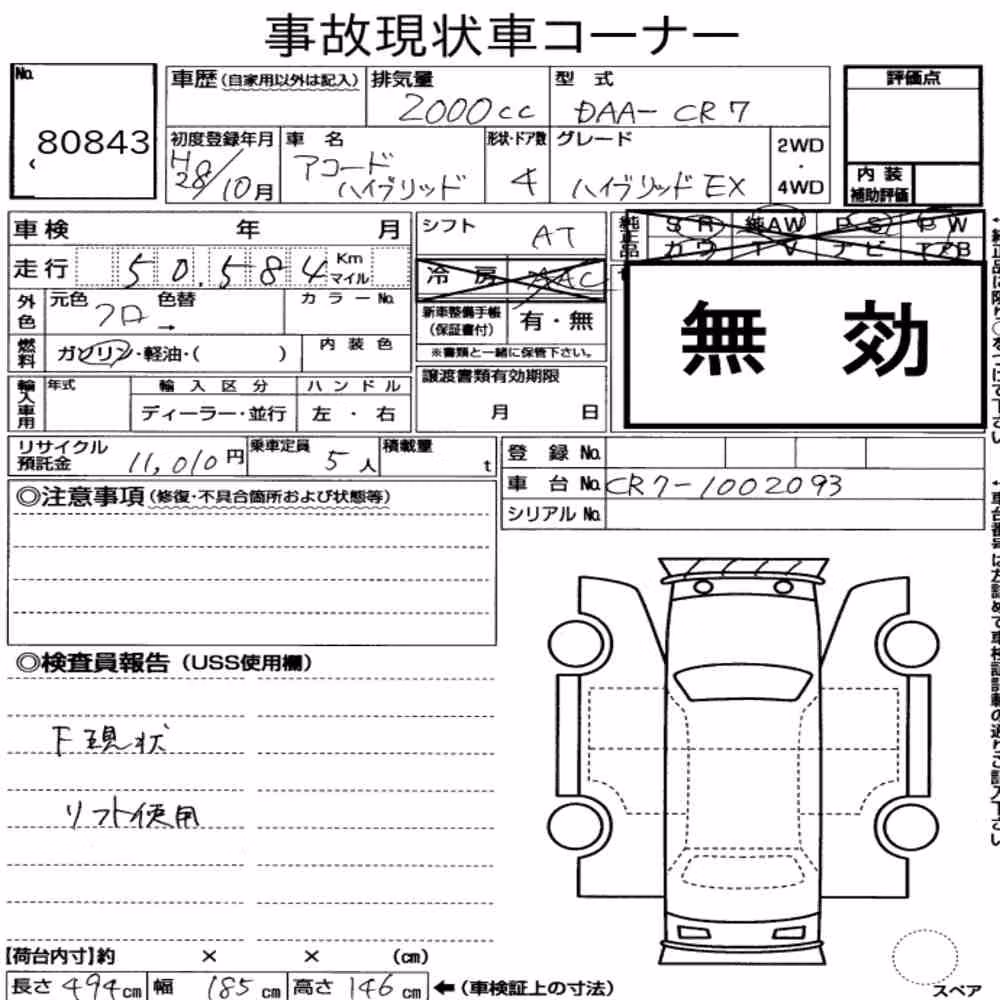 事故現状車コーナー
No. 80843
車歴(自家用以外は記入)
排気量 2000cc
型式 DAA-CR7
評価点
初度登録年月 H28/10月
車名 アコード ハイブリッド
形状・ドア数 4
グレード ハイブリッドEX
2WD・4WD
内装補助評価
車検 年 月
シフト AT
純正品 SR 純AW PS PW
カワ TV ナビ
走行 50.584 Km マイル
冷房 AAC
外色 元色 クロ 色替 → カラーNo.
新車整備手帳(保証書付) 有・無
※書類と一緒に保管下さい。
無効
燃料 ガソリン・軽油・( ) 内装色
輸入車用 年式 輸入区分 ハンドル
ディーラー・並行 左・右
譲渡書類有効期限
月 日
リサイクル預託金 11,010円
乗車定員 5人
積載量 t
登録No.
車台No. CR7-1002093
シリアルNo.
◎注意事項(修復・不具合箇所および状態等)
◎検査員報告(USS使用欄)
下現状
リフト使用
【荷台内寸】約 × × (cm)
長さ 494cm 幅 185cm 高さ 146cm ←(車検証上の寸法)
スペア